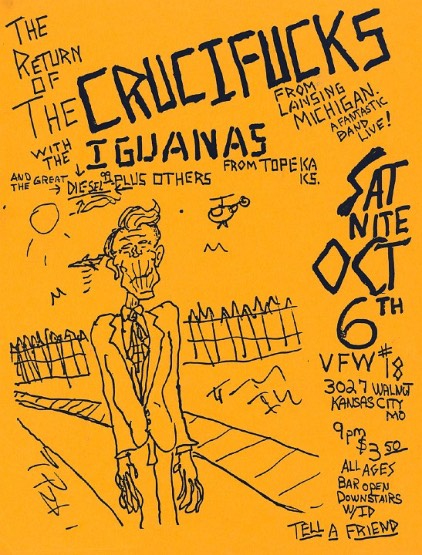 THE
RETURN
OF
THE
CRUCIFUCKS
FROM
LAINSING
MICHIGAN.
A FANTASTIC
BAND
LIVE!
WITH
THE
IGUANAS
FROM TOPEKA
KS.
AND
THE GREAT
DIESEL
PLUS OTHERS
SAT
NITE
OCT
6TH
VFW #18
3027 WALNUT
KANSAS CITY
MO
9PM
$3.50
ALL AGES
BAR OPEN
DOWNSTAIRS
W/ID
TELL A FRIEND